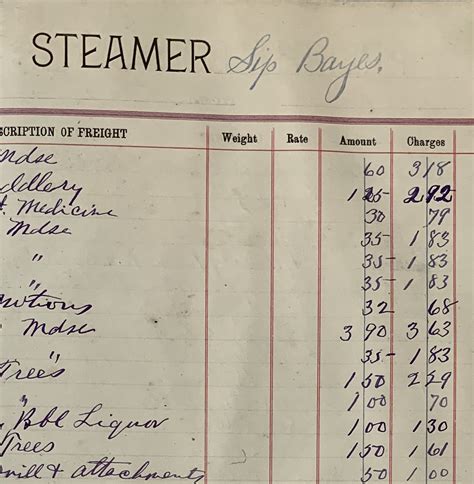 STEAMER Sip Bayes.
SCRIPTION OF FREIGHT Weight Rate Amount Charges
Mdse 60 3 18
ddlery 1 25 2 92
t. Medicine 30 79
Mdse 35 1 83
" 35 1 83
" 35 1 83
Notions 32 68
Mdse 3 90 3 63
" 35 1 83
Trees 1 50 2 29
" 1 00 70
Bbl Liquor 1 00 1 30
Trees 1 50 1 61
mill & attachments 50 1 00